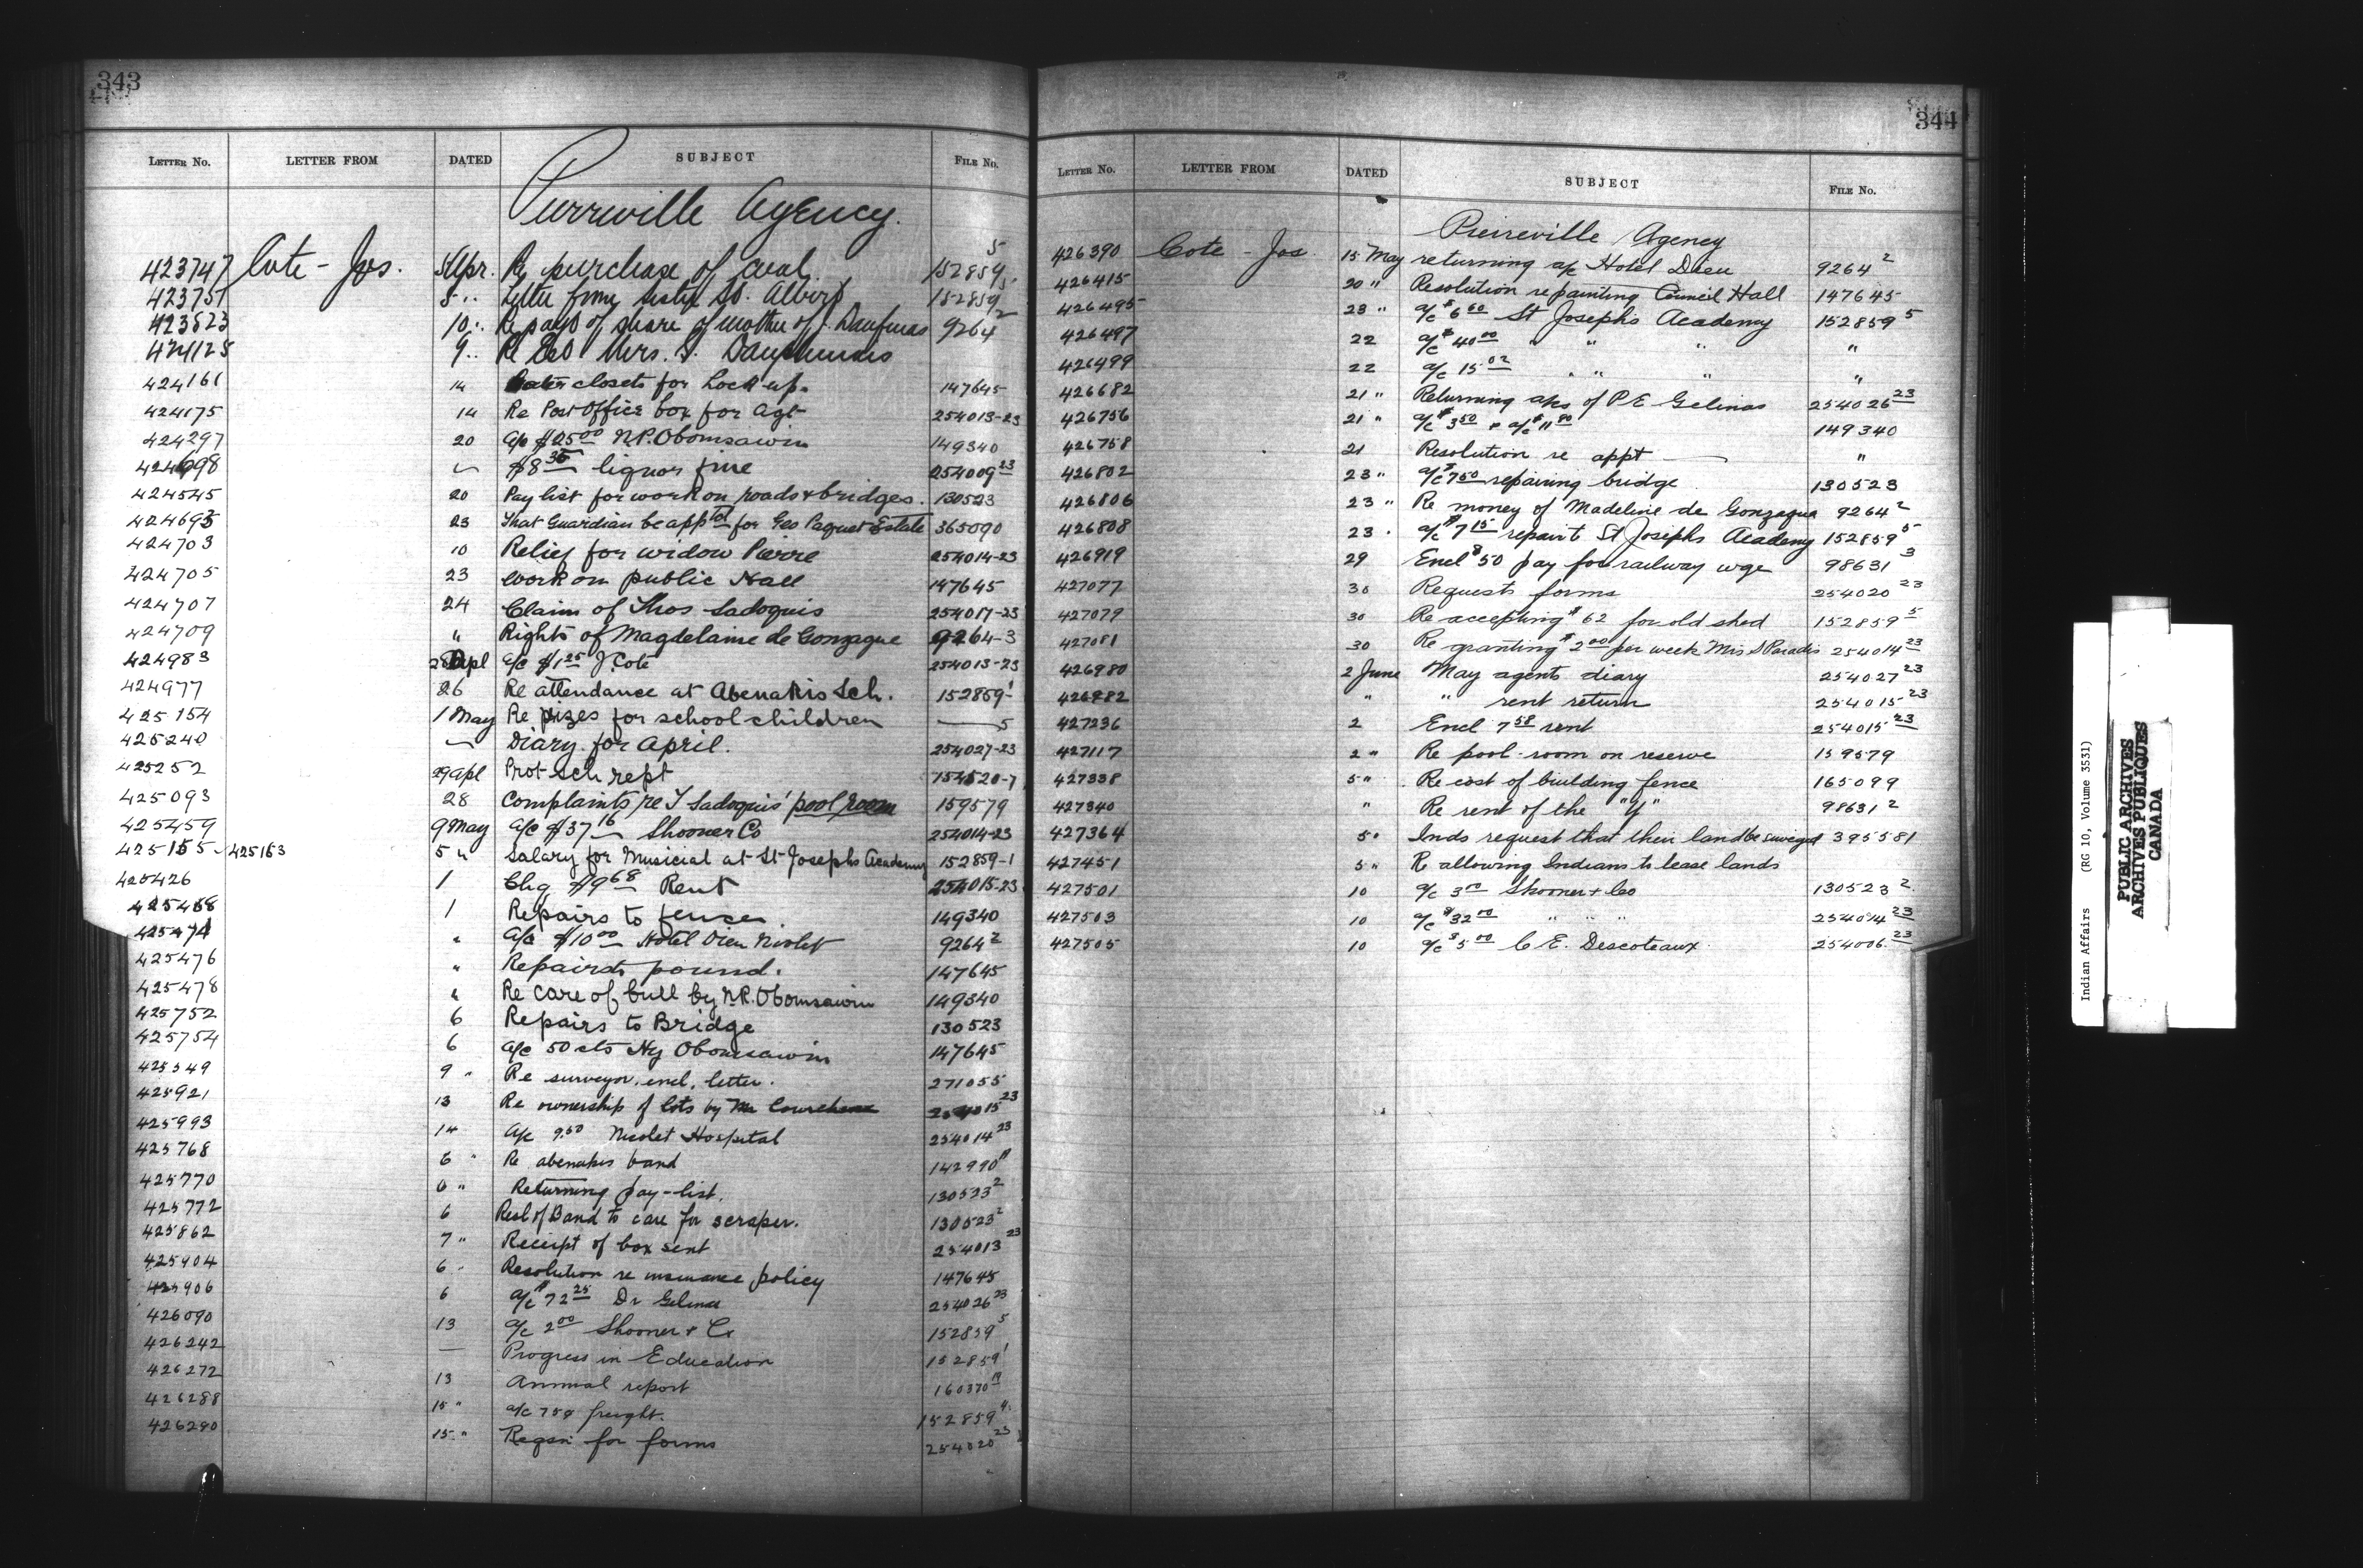 343
LETTER NO. LETTER FROM DATED SUBJECT FILE NO.
Pierreville Agency.
423747 Cote - Jos. 5 Apr. Re purchase of coal. 152859 5
423751 5 " Letter from Sister St. Albert 152859 5
423823 10 " Re payt of share of mother of Daufinas 9264 2
424125 9 " Re Mrs. Dauphinais
424161 14 Water closets for Lock up. 147645
424175 14 Re Post Office box for Agt 254013-23
424297 20 a/c $25 00 N.P. Obomsawin 149340
424698 " $8 35 liquor fine 254009 23
424545 20 Pay list for work on roads & bridges. 130523
424693 23 That Guardian be apptd for Geo Paquet Estate 365090
424703 10 Relief for widow Pierre 254014-23
424705 23 Work on public Hall 147645
424707 24 Claim of Thos Sadoquis 254017-23
424709 " Rights of Magdelaine de Gonzague 9264-3
424983 28 Apl a/c $1 25 J. Cote 254013-23
424977 26 Re attendance at Abenakis Sch. 152859-1
425154 1 May Re prizes for school children — 5
425240 " Diary for April. 254027-23
425252 29 Apl Prot sch rept 154520-7
425093 28 Complaints re T Sadoquis' pool room 159579
425459 9 May a/c $37 16 Shooner Co 254014-23
425155-425163 5 " Salary for Musicial at St Josephs Academy 152859-1
425426 1 Chq $9 68 Rent 254015-23
425468 1 Repairs to fence. 149340
425474 " a/c $10 00 Hotel Dieu Nicolet 9264 2
425476 " Repairs to pound. 147645
425478 " Re care of bull by N.P. Obomsawin 149340
425752 6 Repairs to Bridge 130523
425754 6 a/c 50 cts Hy Obomsawin 147645
425549 9 " Re surveyor. encl. letter. 271055
425921 13 Re ownership of lots by Mr 254015 23
425993 14 a/c 9.50 Nicolet Hospital 254014 23
425768 6 " Re abenakis band 142990
425770 6 " Returning pay-list. 130523 2
425772 6 Resl of Band to care for scraper. 130523 2
425862 7 " Receipt of box sent 254013 23
425904 6 " Resolution re insurance policy 147645
425906 6 a/c $72 25 Dr Gelinas 254026 23
426090 13 a/c 2 00 Shooner & Co 152859 5
426242 — Progress in Education 152859 1
426272 13 Annual report 160370
426288 15 " a/c 75¢ freight. 152859
426290 15 " Reqsn for forms 254020 23
344
LETTER NO. LETTER FROM DATED SUBJECT FILE NO.
Pierreville Agency
426390 Cote - Jos 15 May returning a/c Hotel Dieu 9264 2
426415 20 " Resolution repainting Council Hall 147645
426495 23 " a/c $6 00 St Josephs Academy 152859 5
426497 22 a/c $40 00 " " " "
426499 22 a/c 15 02 " " " "
426682 21 " Returning a/cs of P E Gelinas 254026 23
426756 21 " a/c $3 50 & a/c $11 80 149340
426758 21 Resolution re appt — "
426802 23 " a/c $7 50 repairing bridge 130523
426806 23 " Re money of Madeline de Gonzague 9264 2
426808 23 " a/c $7 15 repairs St Josephs Academy 152859 5
426919 29 Encl $50 pay for railway wge 98631 3
427077 30 Requests forms 254020 23
427079 30 Re accepting $62 for old shed 152859 5
427081 30 Re granting $2 00 per week Mrs S Paradis 254014 23
426980 2 June May agents diary 254027 23
426982 " " rent return 254015 23
427236 2 Encl 7 58 rent 254015 23
427117 2 " Re pool-room on reserve 159579
427338 5 " Re cost of building fence 165099
427340 " Re rent of the "Y" 98631 2
427364 5 " Inds request that their land be surveyed 395581
427451 5 " Re allowing Indians to lease lands
427501 10 a/c 3 00 Shooner & Co 130523 2
427503 10 a/c $32 00 " " " 254014 23
427505 10 a/c $5 00 C E. Descoteaux 254006 23
Indian Affairs (RG 10, Volume 3531)
PUBLIC ARCHIVES
ARCHIVES PUBLIQUES
CANADA